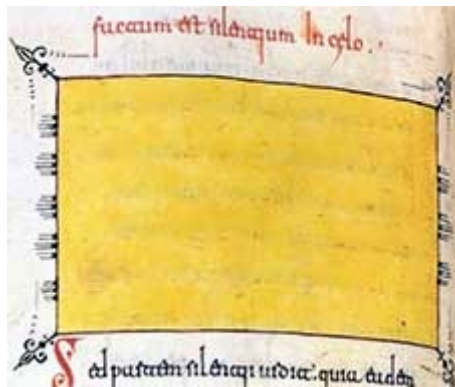 factum est silentium In celo.
Sed partem silentii quia